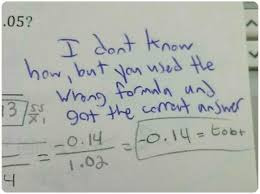 .05?
I dont know
how, but you used the
wrong formula and
got the correct answer
13
SS
-0.14
1.02
= -0.14 = tobt
4